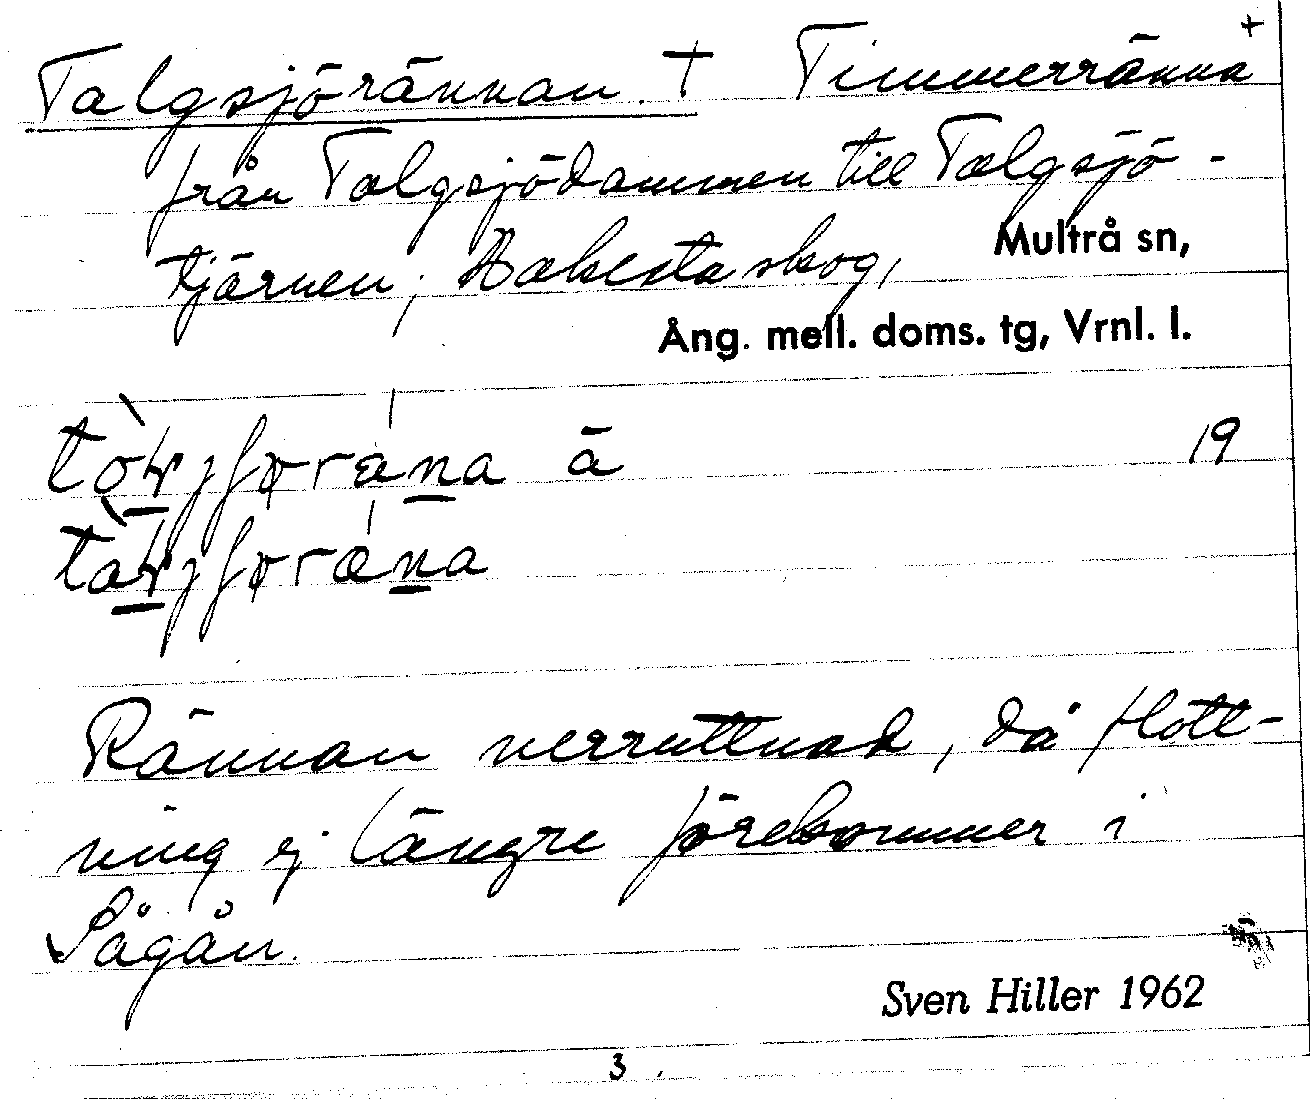 Talgsjörännan. † Timmerränna +
från Talgsjödammen till Talgsjö-
tjärnen, skog, Multrå sn,
Ång. mell. doms. tg, Vrnl. l.
ā 19
Rännan verruttnad, då flott-
ning ej längre förekommer i
Sågån.
Sven Hiller 1962
3